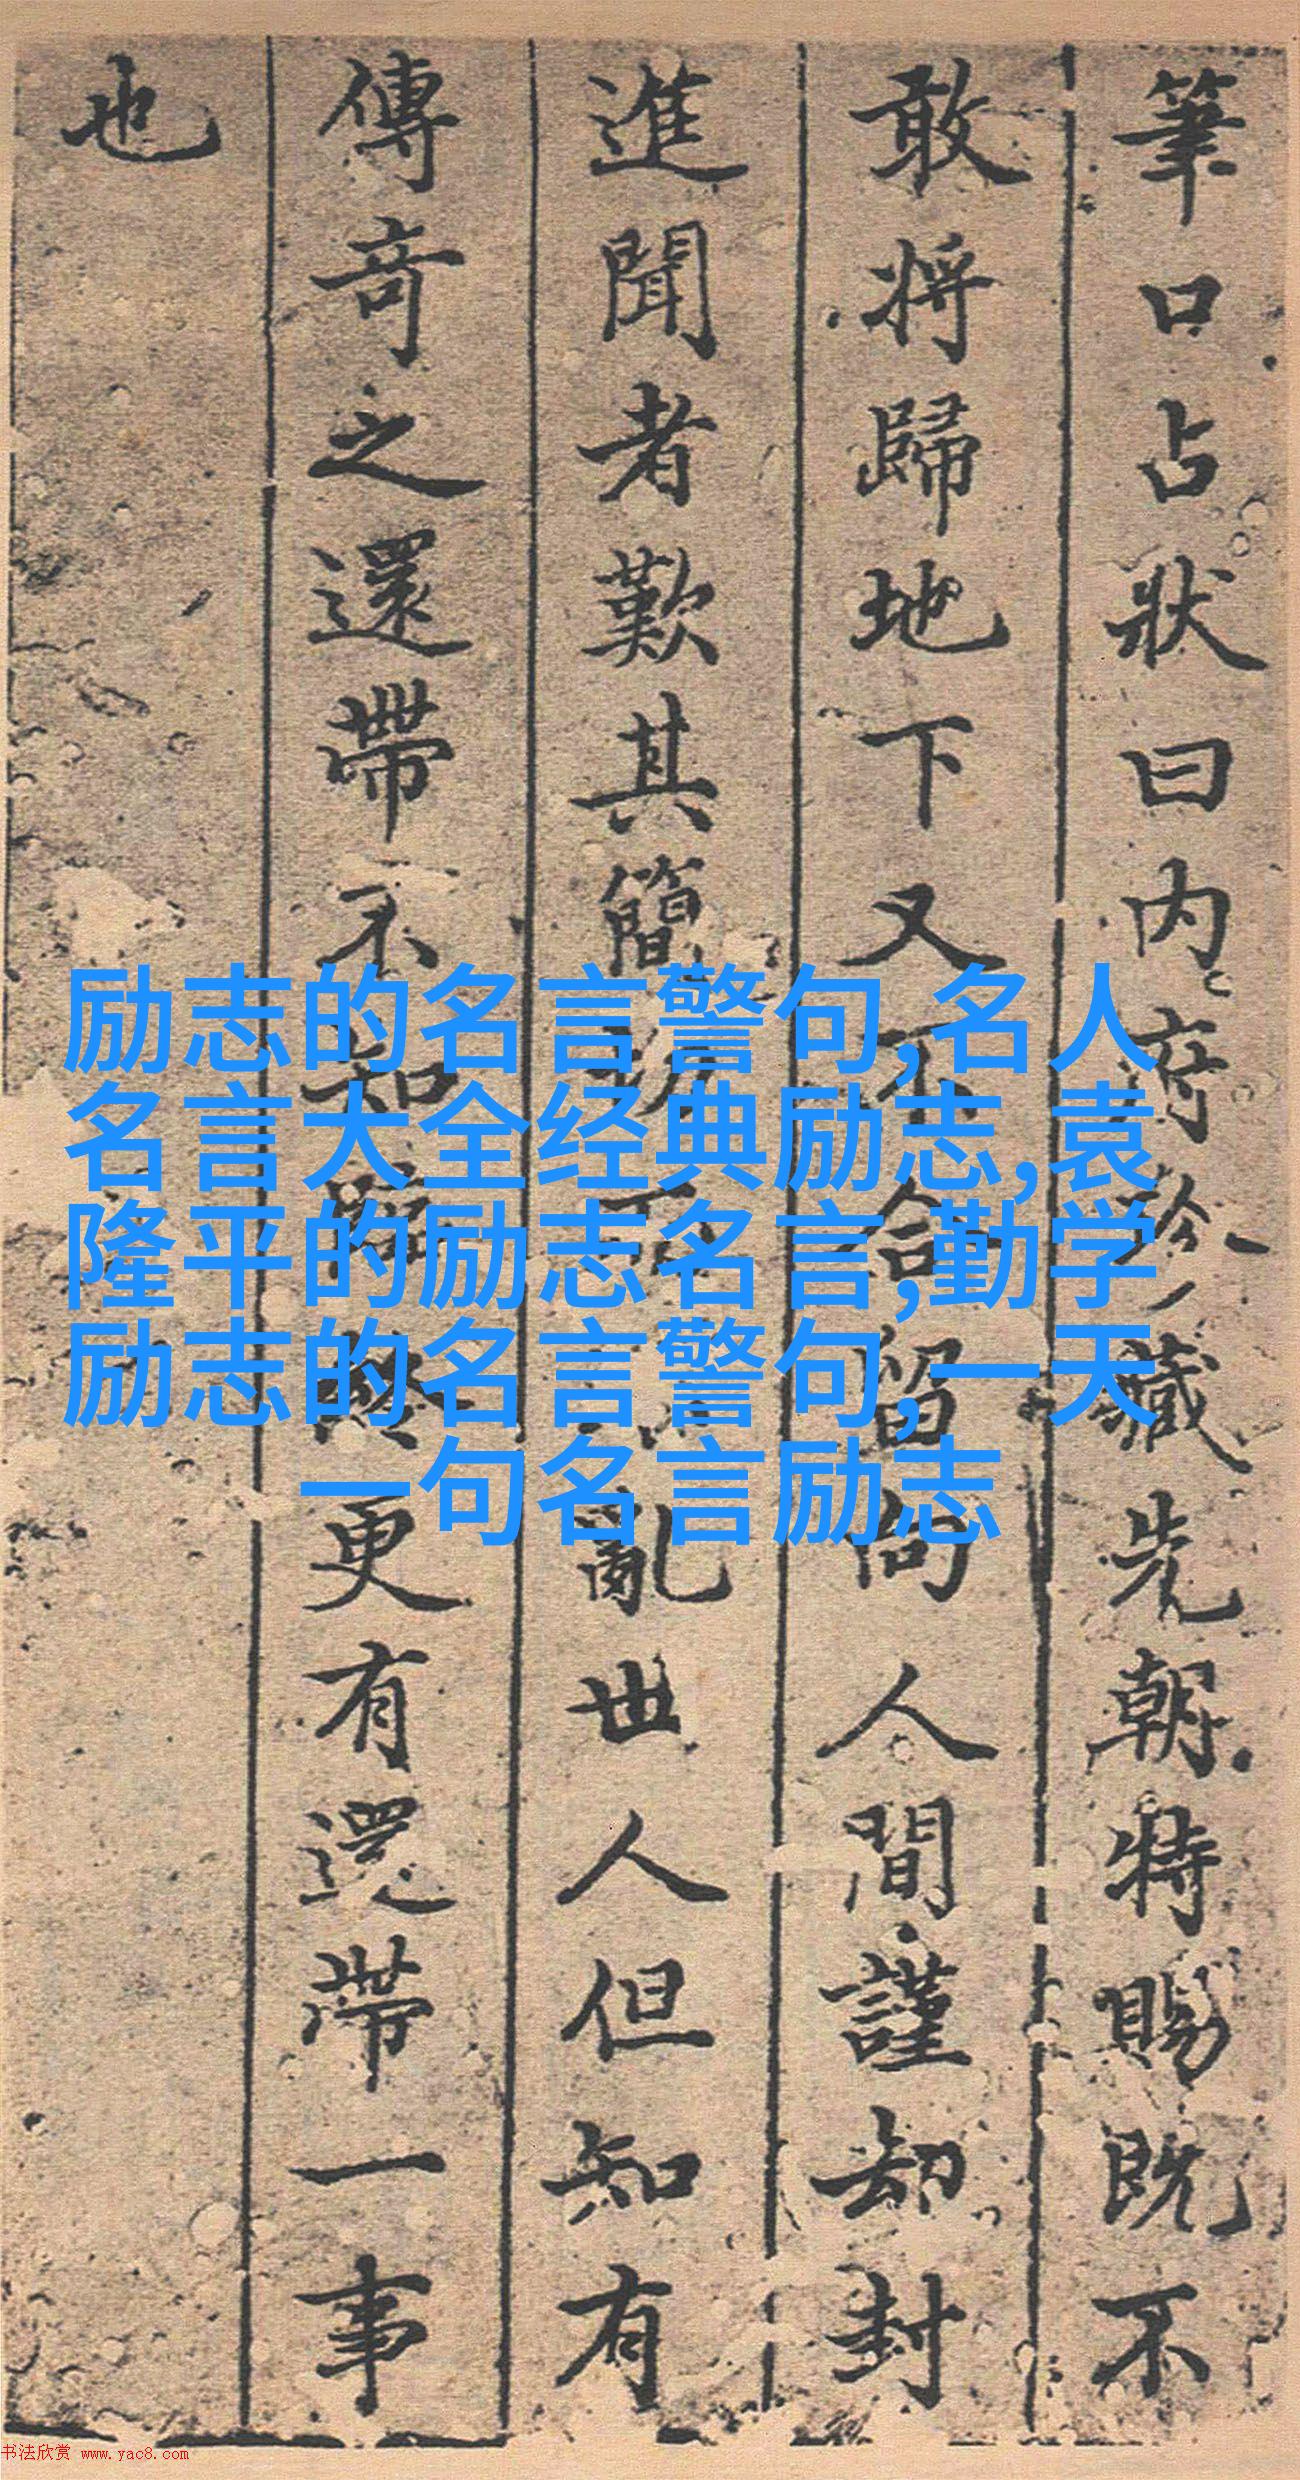 筆口占狀曰内府珍藏先朝特賜既不
敢將歸地下又不合留向人間謹却封
進聞者歎其簡切而不亂世人但知有
傳奇之還帶不知臨終更有還帶一事
也
励志的名言警句,名人
名言大全经典励志,袁
隆平的励志名言,勤学
励志的名言警句,一天
一句名言励志
书法欣赏 www.yac8.com